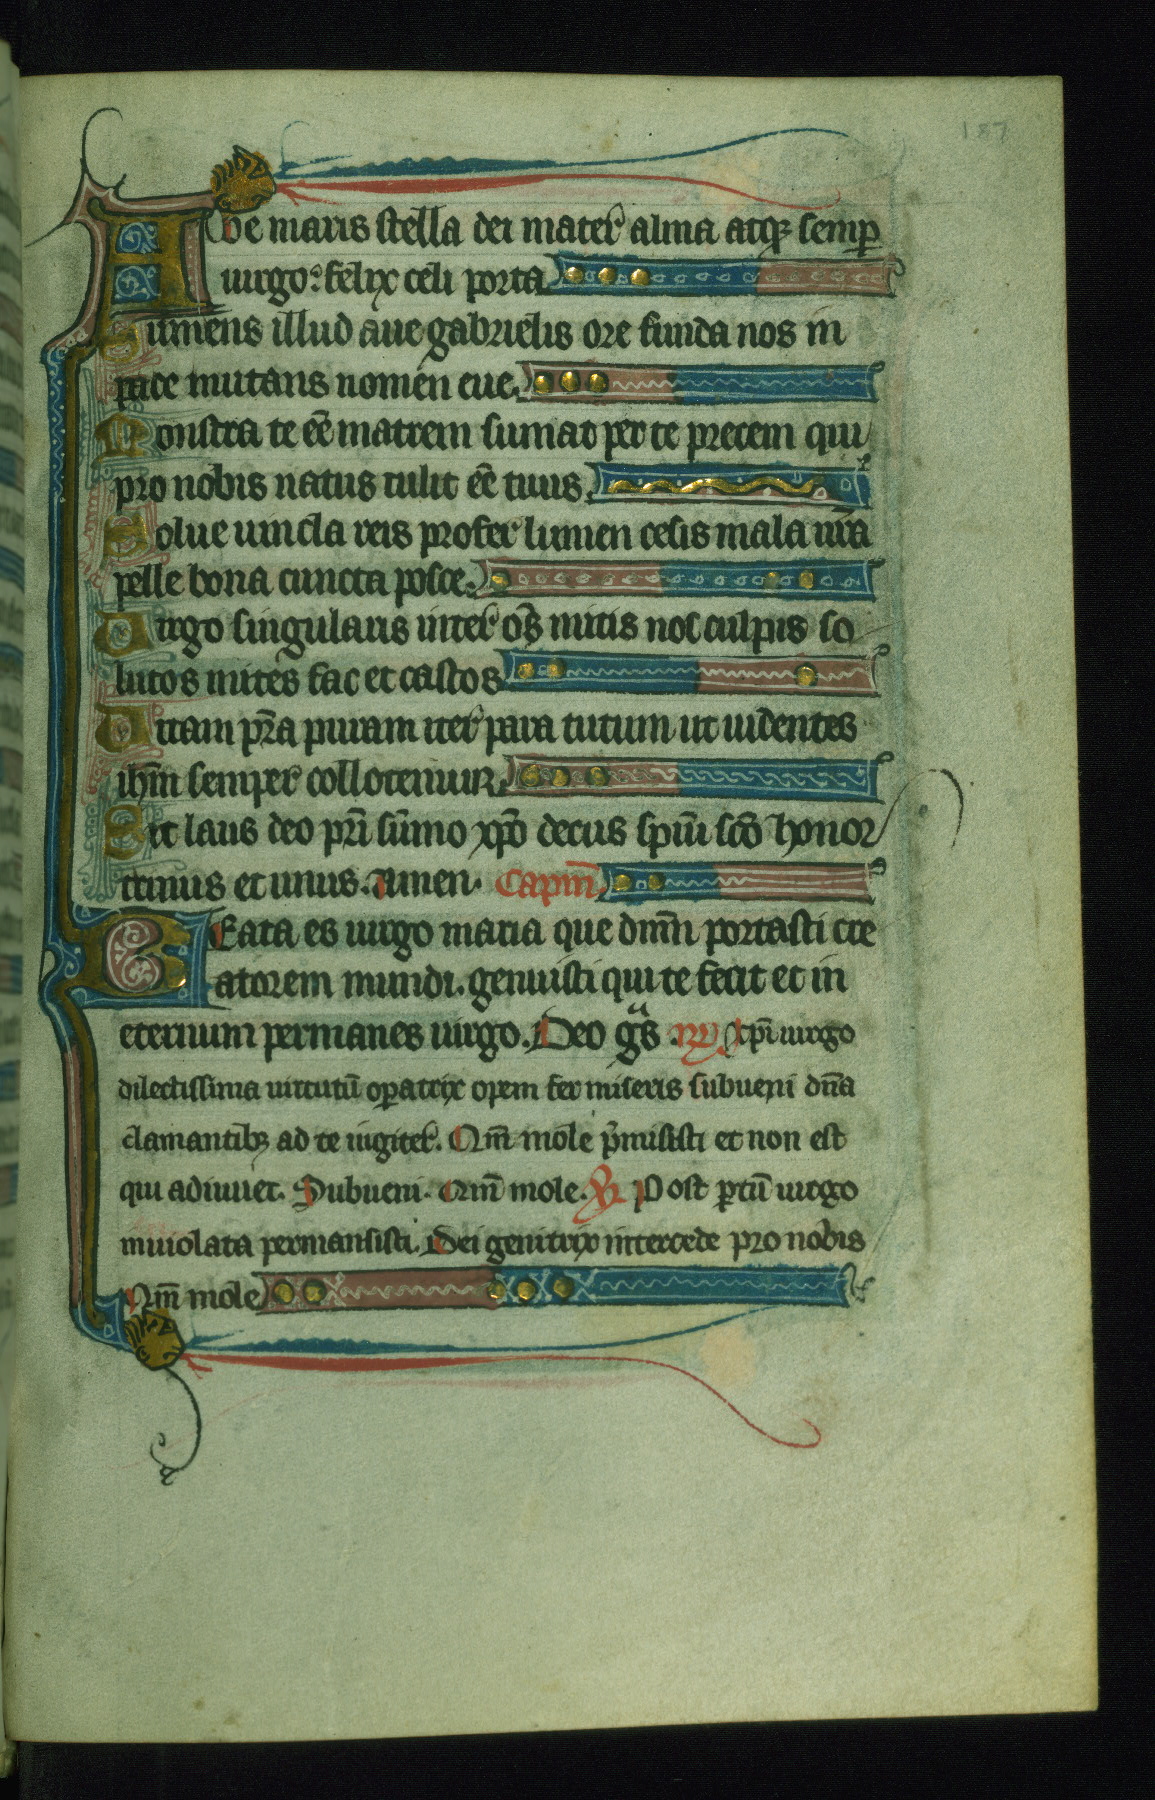 187
Ave maris stella dei mater alma atq; semp
uirgo: felix celi porta
Sumens illud aue gabrielis ore funda nos in
pace mutans nomen eue.
Monstra te eē matrem sumat per te precem qui
pro nobis natus tulit eē tuus.
Solue uincla reis profer lumen cecis mala nr̄a
pelle bona cuncta posce.
Uirgo singularis inter oēs mitis nos culpis so
lutos mites fac et castos
Uitam pr̄a puram iter para tutum ut uidentes
ihm̄ semper colletemur.
Sit laus deo pr̄i sūmo xp̄o decus sp̄ui scō honor
trinus et unus. Amen. Capitm̄
Beata es uirgo maria que dnm̄ portasti cre
atorem mundi. genuisti qui te fecit et in
eternum permanes uirgo. Deo grās. xp̄i uirgo
dilectissima uirtutū opatrix opem fer miseris subueni dn̄a
clamantib; ad te iugiter. Qm̄ mole p̄missti et non est
qui adiuuet. Subueni. Qm̄ mole. Post partū uirgo
inuiolata permansisti. Dei genitrix intercede pro nobis
Qm̄ mole